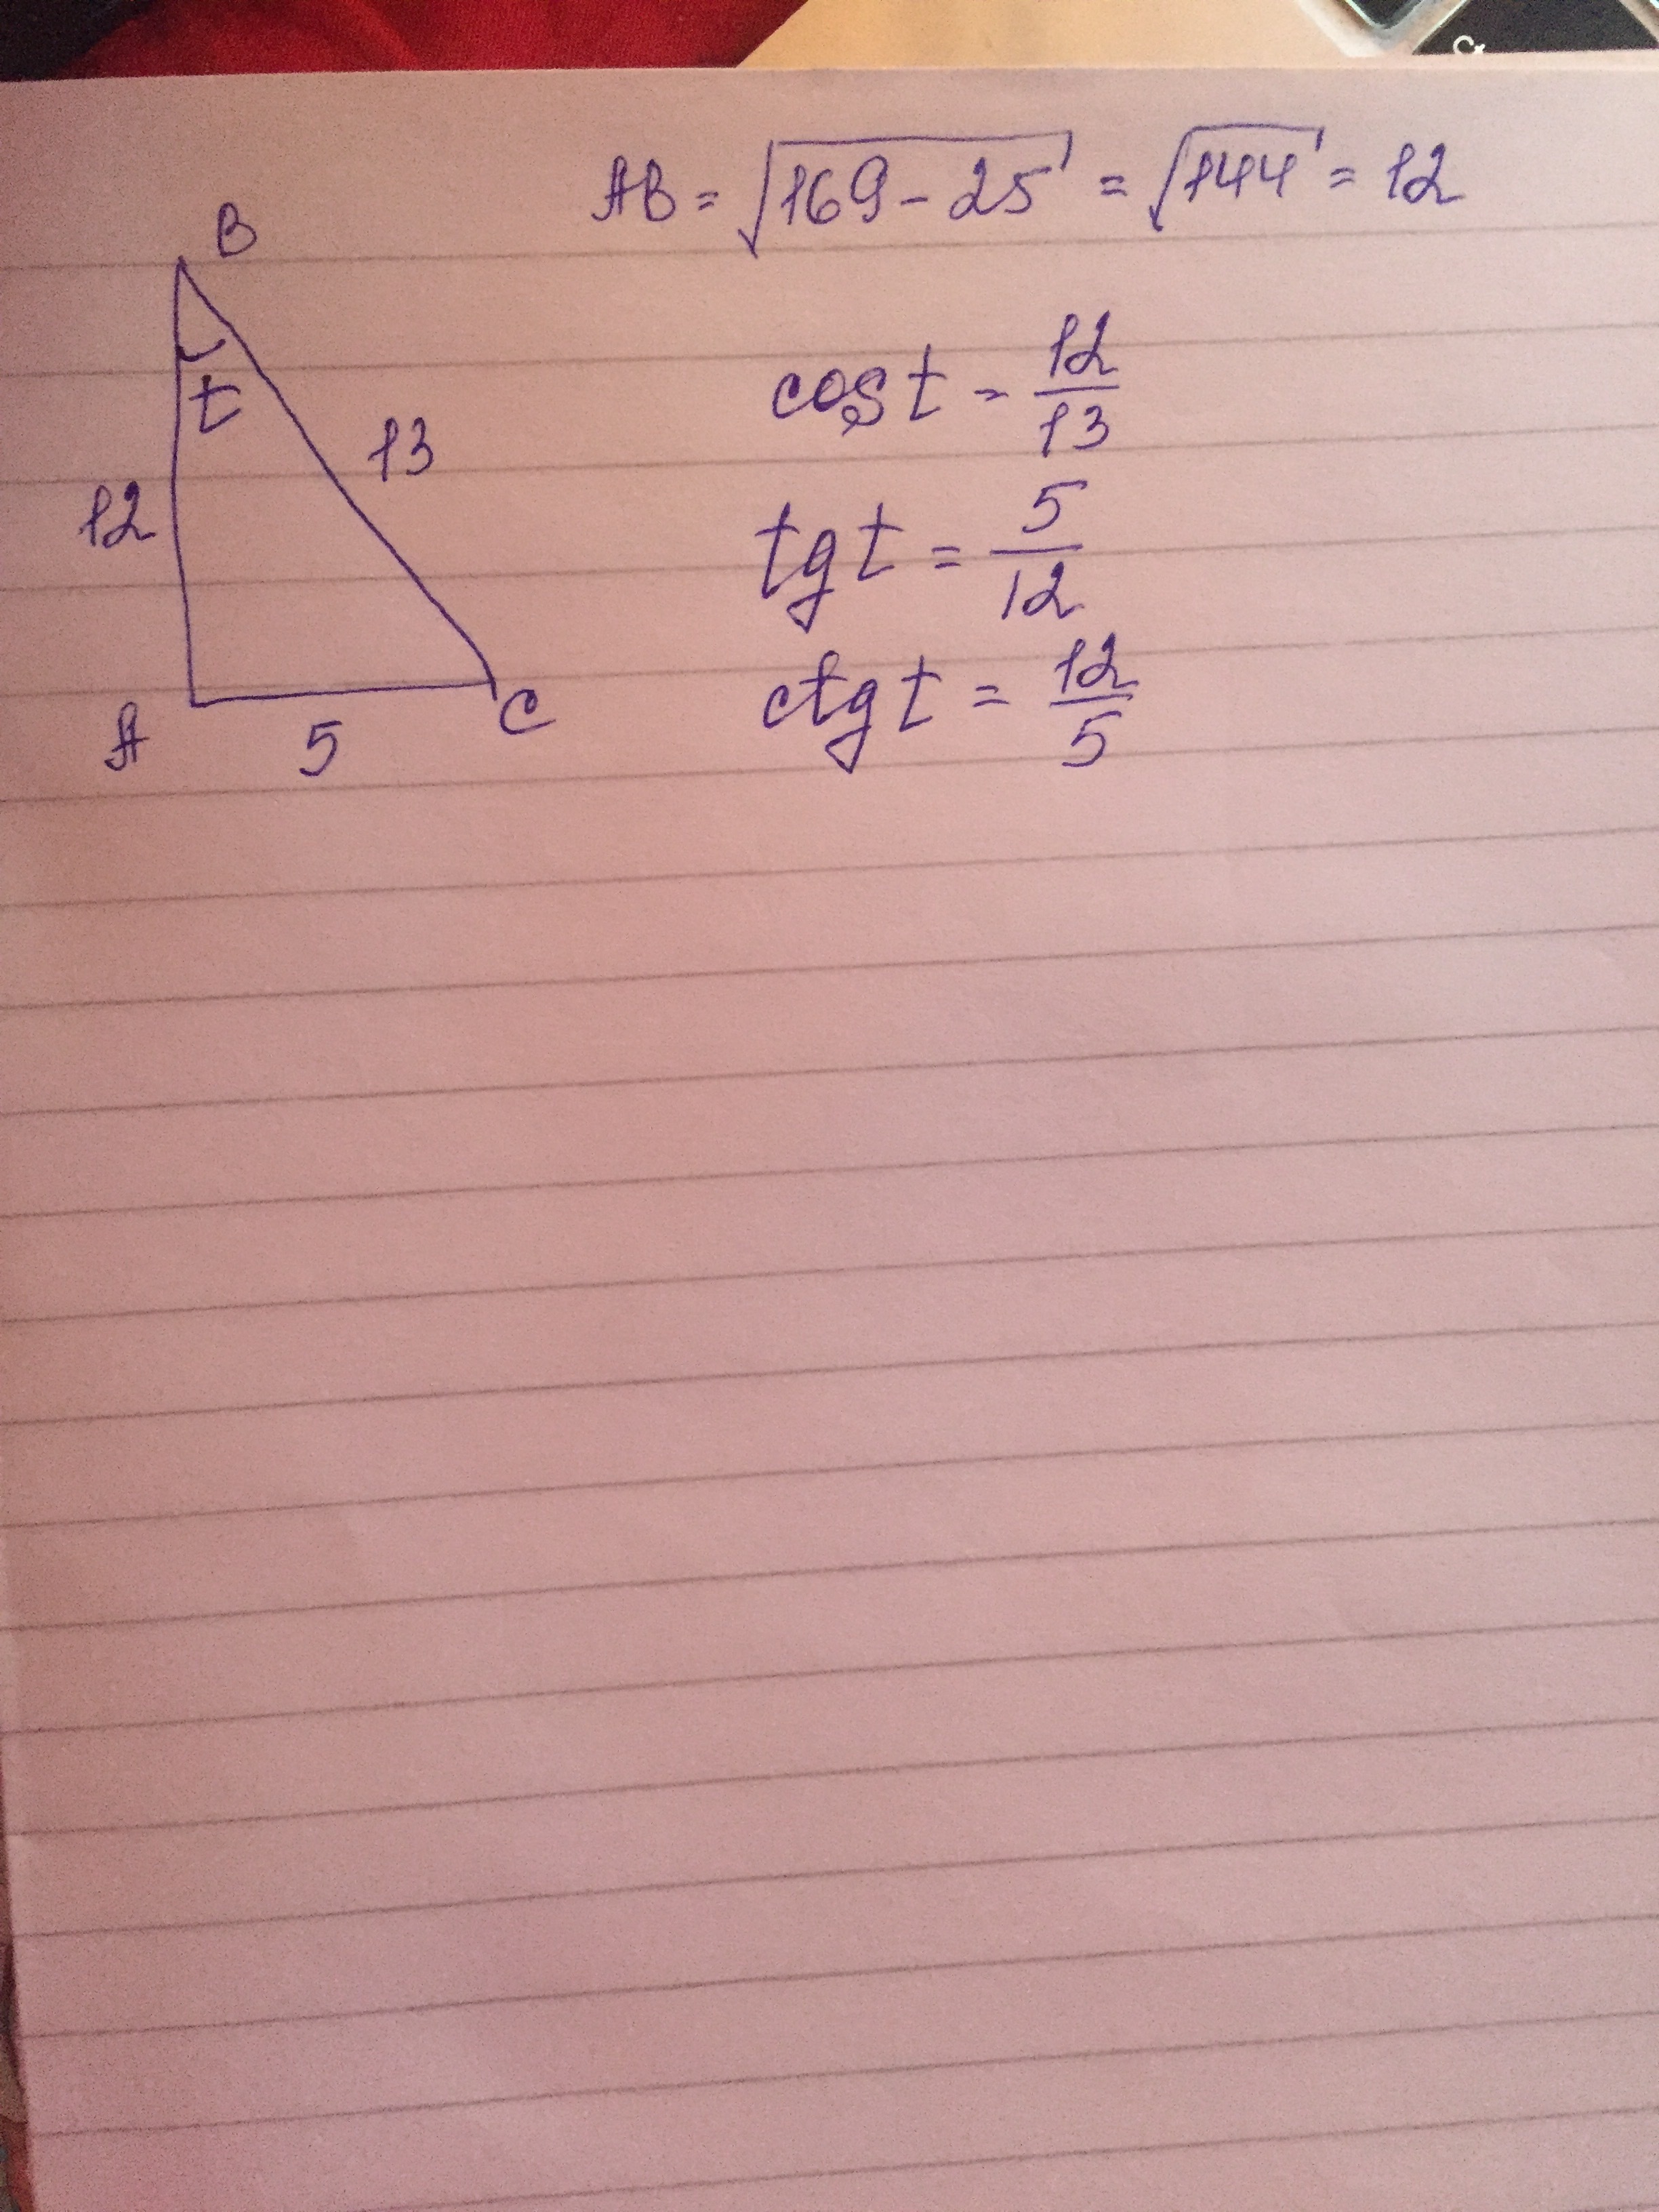 AB = √169 - 25 = √144 = 12
B
t
13
12
A
5
C
cos t = 12/13
tg t = 5/12
ctg t = 12/5